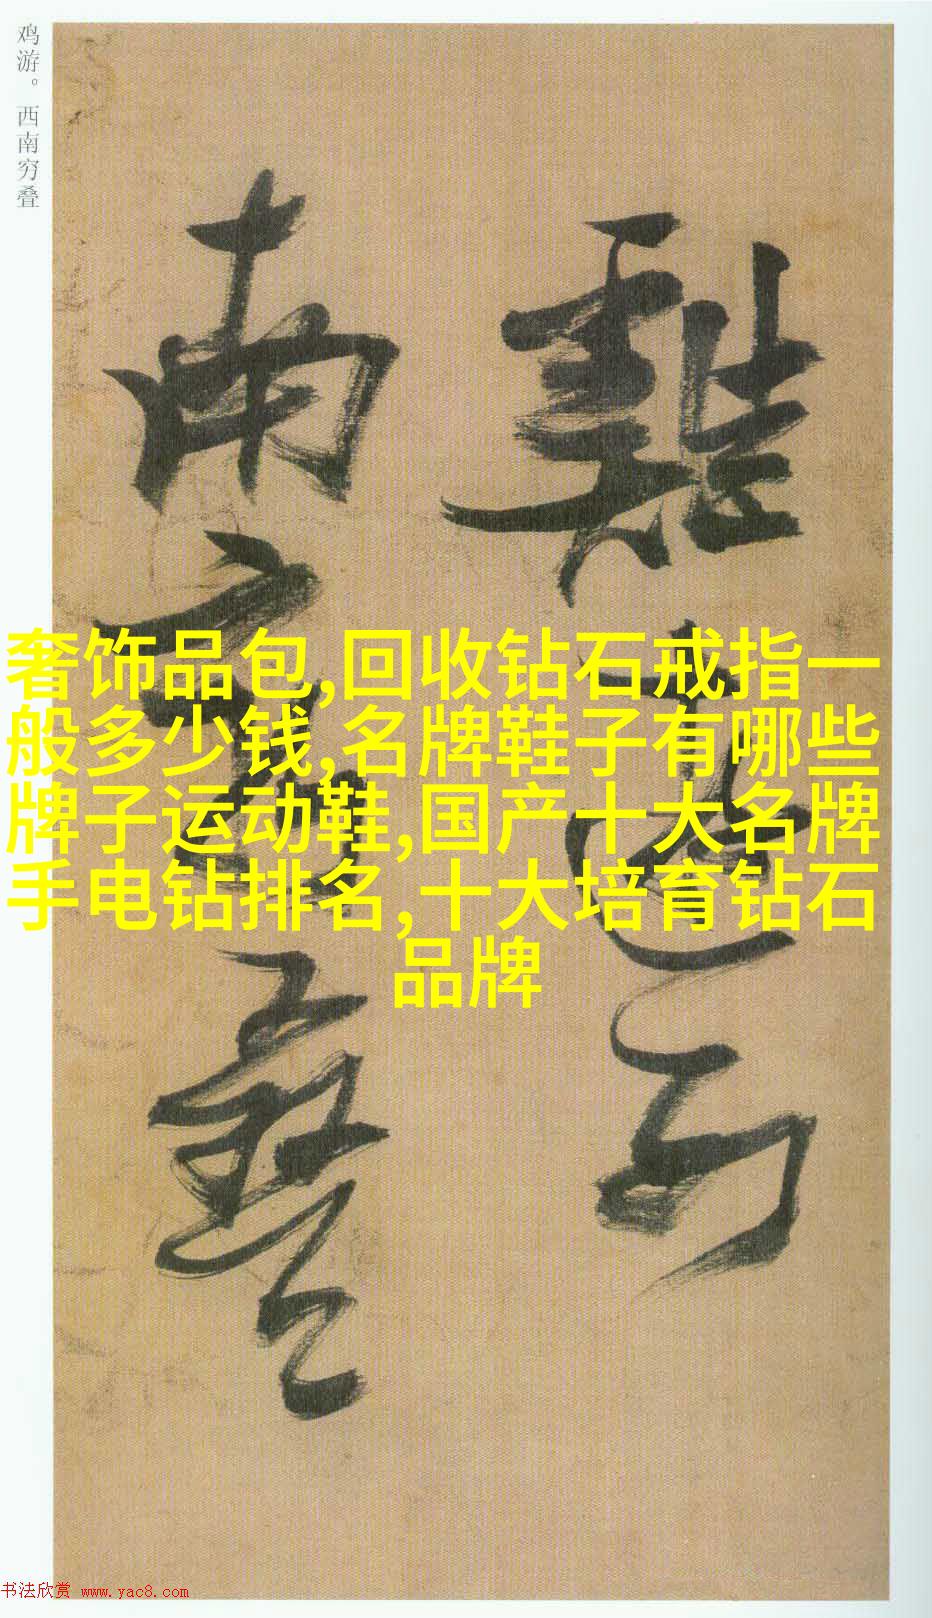 鸡游。西南穷叠
雞游西
南窮叠
奢饰品包,回收钻石戒指一
般多少钱,名牌鞋子有哪些
牌子运动鞋,国产十大名牌
手电钻排名,十大培育钻石
品牌
书法欣赏 www.yac8.com